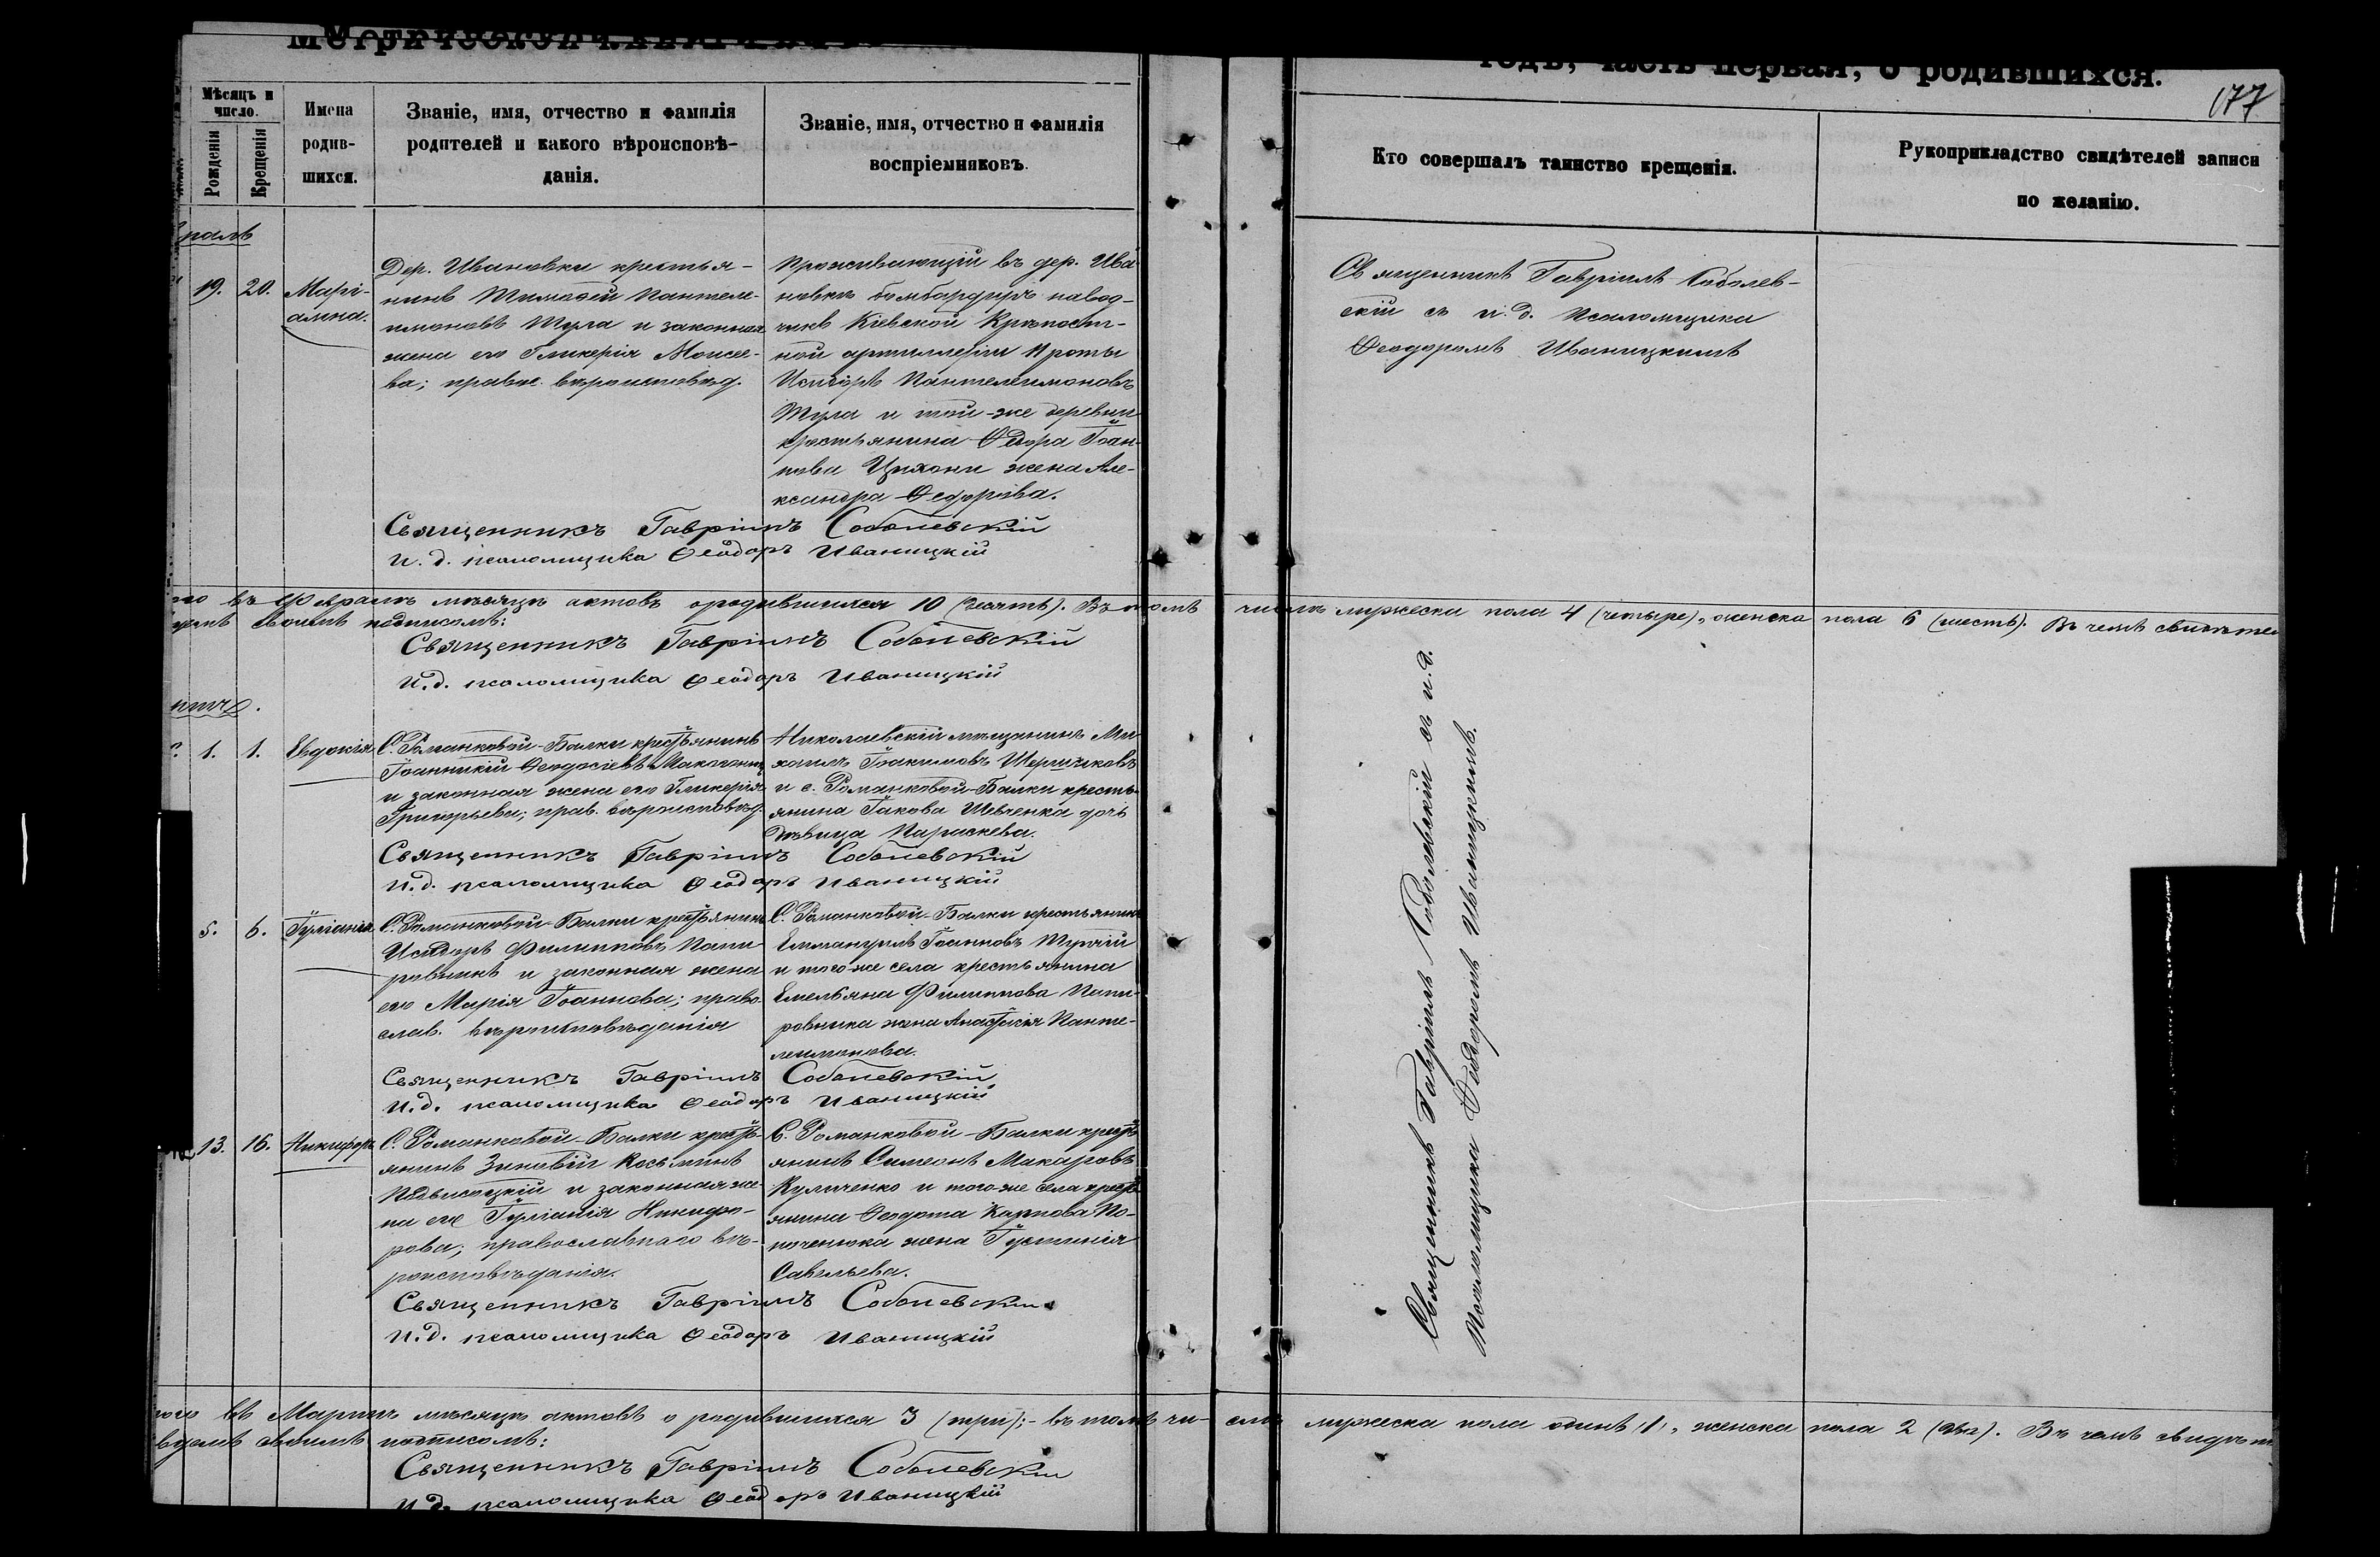 177
Мѣсяцъ и число.
Рожденія
Крещенія
Имена родив-
шихся.
Званіе, имя, отчество и фамилія
родителей и какого вѣроисповѣ-
данія.
Званіе, имя, отчество и фамилія
воспріемниковъ.
годъ, часть первая, о родившихся.
Кто совершалъ таинство крещенія.
Рукоприкладство свидѣтелей записи
по желанію.
19. 20. Марі-
амна.
Дер. Ивановки крестья-
нинъ Тимофей Пантеле-
имоновъ Тула и законная
жена его Гликерія Моисее-
ва; правос. вѣроисповѣд.
Проживающій въ дер. Ива-
новкѣ бомбардиръ навод-
чикъ Кіевской Крѣпост-
ной артиллеріи роты
Исидоръ Пантелеимоновъ
Тула и той-же деревни
крестьянина Ѳедора Іоан-
нова жена Але-
ксандра Ѳедорова.
Священникъ Гавріилъ Соболев-
скій съ и. д. Псаломщика
Ѳеодоромъ Иваницкимъ
Священникъ Гавріилъ Соболевскій
и. д. псаломщика Ѳеодоръ Иваницкій
въ мѣсяцѣ актовъ о родившихся 10 (десять). Въ томъ числѣ мужеска пола 4 (четыре), женска пола 6 (шесть). Въ чемъ
своимъ подписомъ:
Священникъ Гавріилъ Соболевскій
и. д. псаломщика Ѳеодоръ Иваницкій
1. 1. Евдокія
С. Романковой-Балки крестьянинъ
Іоанникій Ѳеодосіевъ
и законная жена его Гликерія
Григорьева; прав. вѣроисповѣд.
Николаевскій мѣщанинъ Ми-
хаилъ Іоакимовъ
и с. Романковой-Балки кресть-
янина Іакова Шевченка дочь
дѣвица Параскева.
Священникъ Гавріилъ Соболевскій
и. д. псаломщика Ѳеодоръ Иваницкій
5. 6. Іуліанія
С. Романковой-Балки крестьянинъ
Исидоръ Филипповъ Папи-
ровникъ и законная жена
его Марія Іоаннова; право-
слав. вѣроисповѣданія
С. Романковой-Балки крестьянинъ
Іоанновъ
и того-же села крестьянина
Емельяна Филиппова Папи-
ровника жена Анастасія Панте-
леимонова.
Священникъ Гавріилъ Соболевскій
и. д. псаломщика Ѳеодоръ Иваницкій
13. 16. Никифоръ
С. Романковой-Балки кресть-
янинъ Зиновій Косьминъ
Подвысоцкій и законная же-
на его Іуліанія Никифо-
рова; православнаго вѣ-
роисповѣданія.
С. Романковой-Балки кресть-
янинъ Симеонъ Макаровъ
Куличенко и того-же села кресть-
янина Ѳеодота Карпова
жена Іустинія
Савельева.
Священникъ Гавріилъ Соболевскій
и. д. псаломщика Ѳеодоръ Иваницкій
Священникъ Гавріилъ Соболевскій съ и. д.
Псаломщика Ѳеодоромъ Иваницкимъ.
въ Мартѣ мѣсяцѣ актовъ о родившихся 3 (три); - въ томъ чи- слѣ мужеска пола одинъ (1), женска пола 2 (два). Въ чемъ
своимъ подписомъ:
Священникъ Гавріилъ Соболевскій
и. д. псаломщика Ѳеодоръ Иваницкій